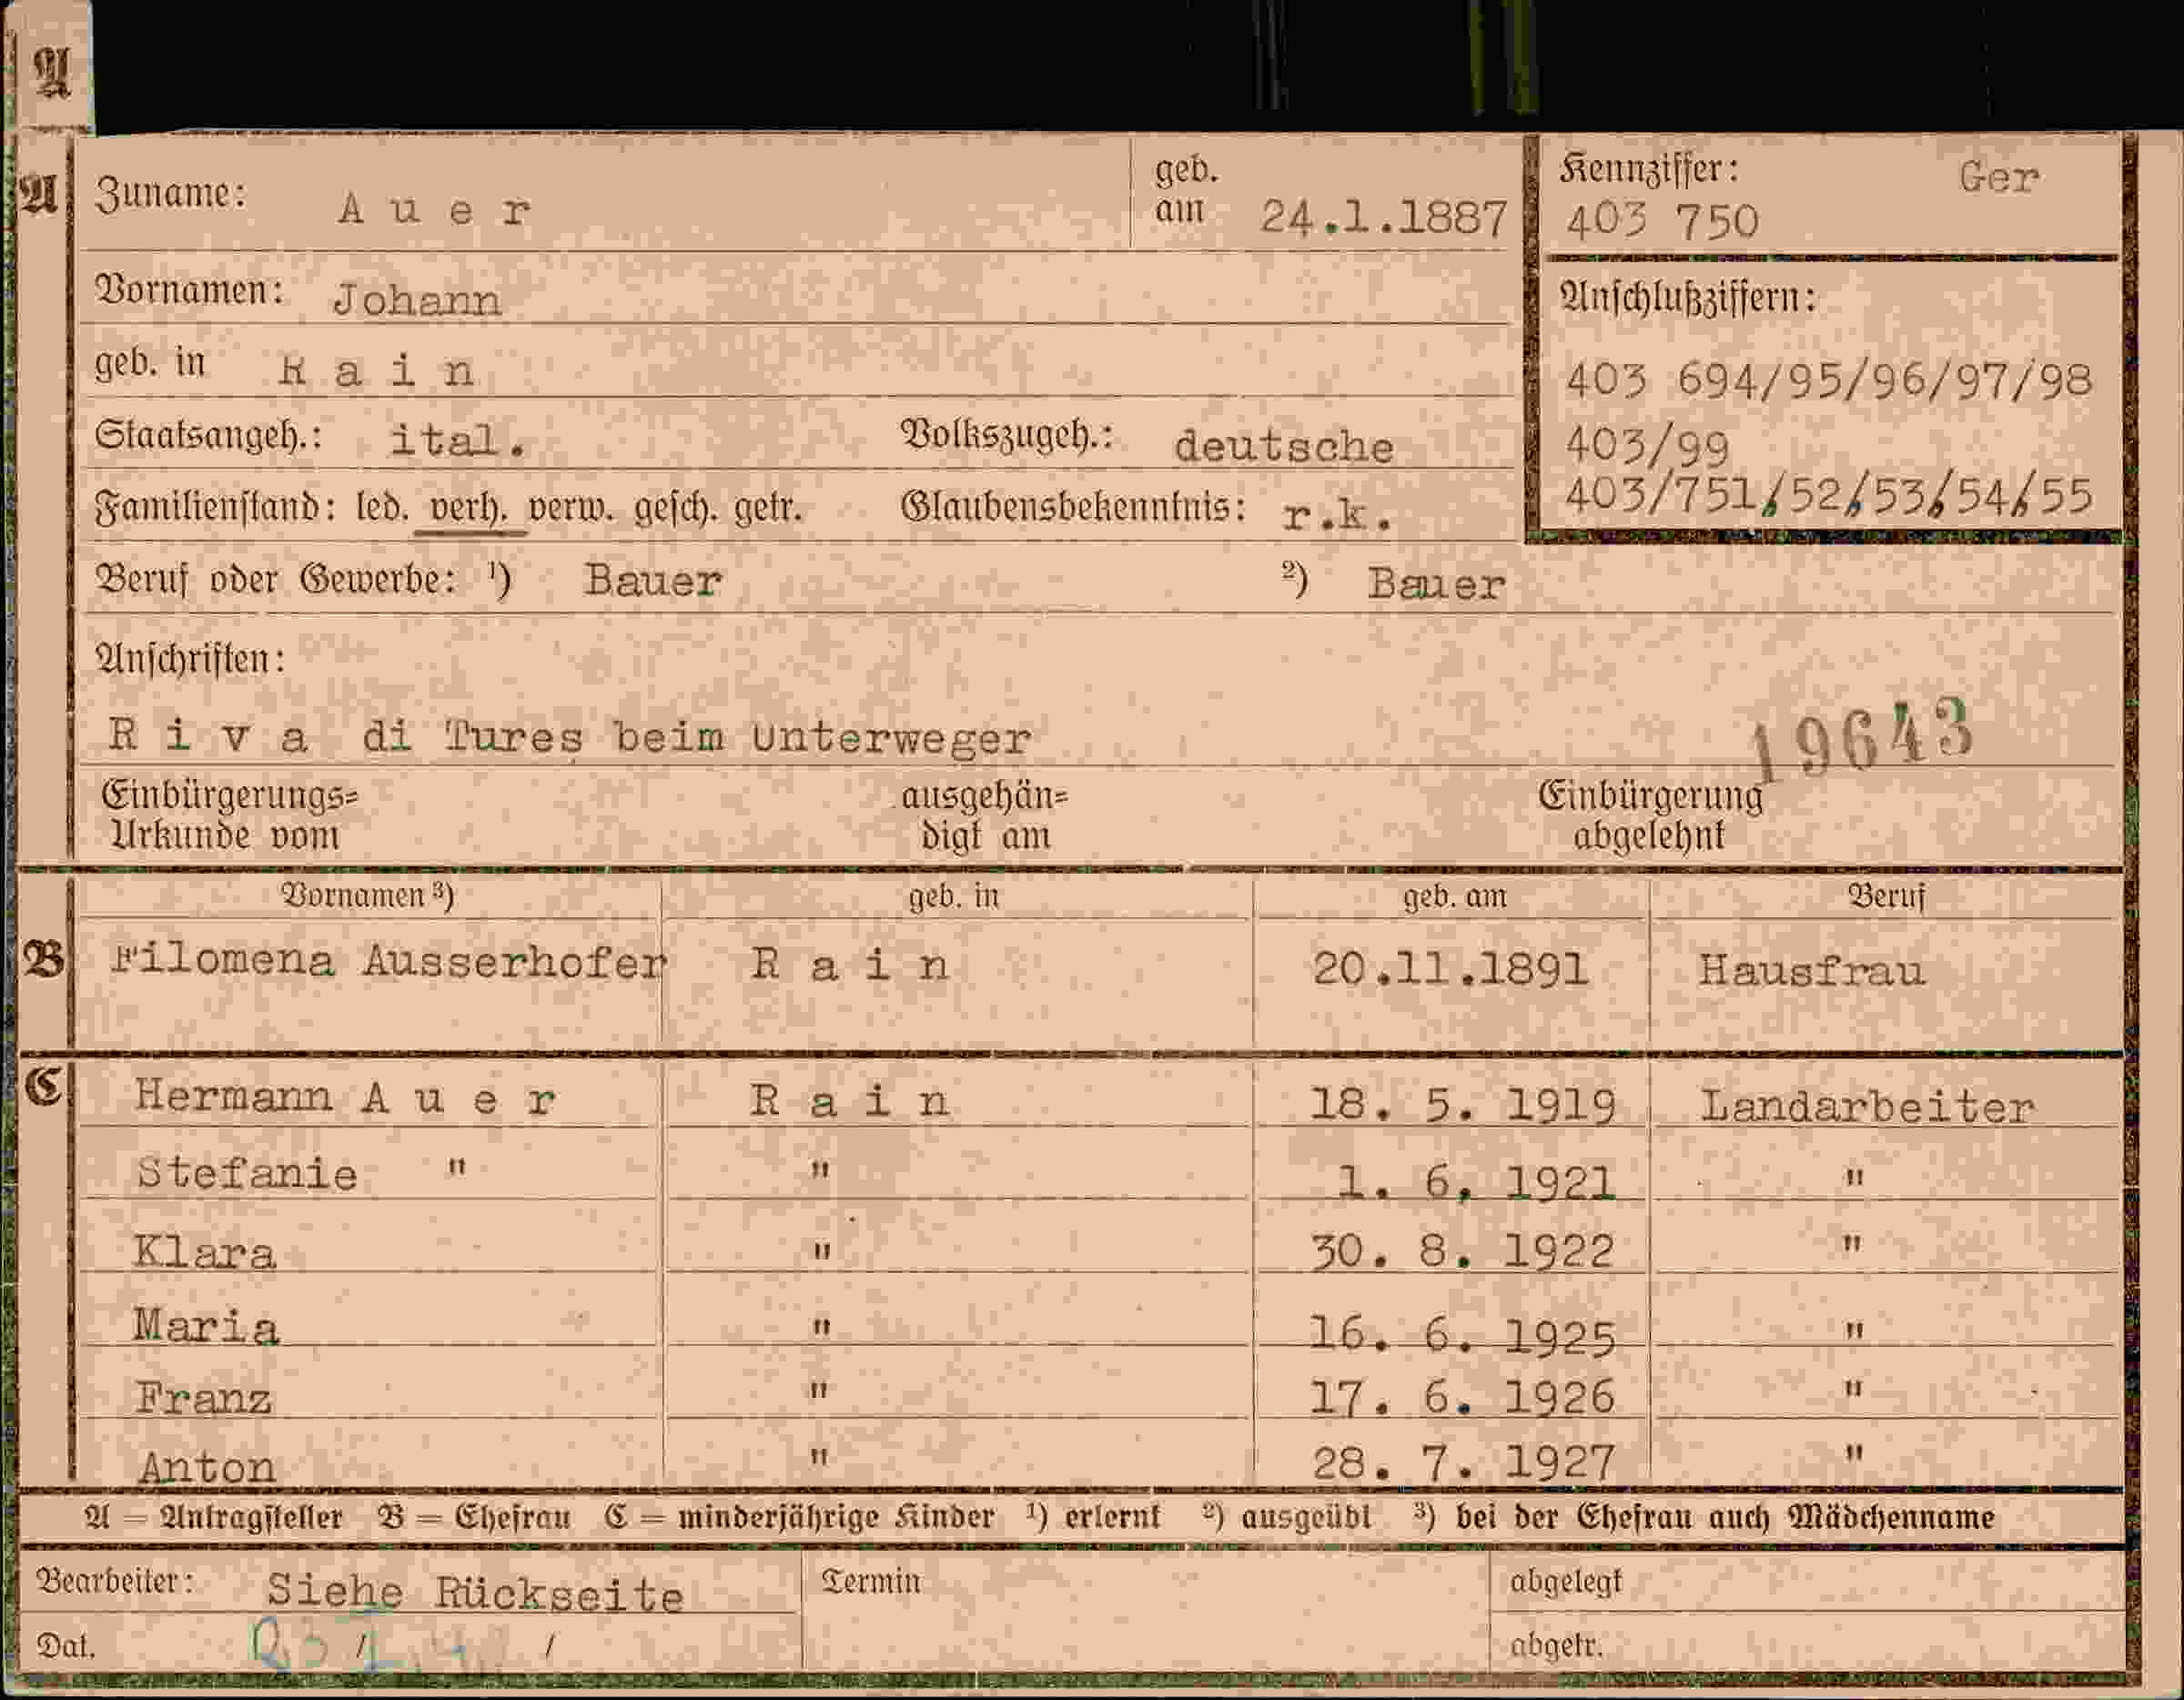 A
A
Zuname: A u e r geb. am 24.1.1887
Kennziffer: Ger
403 750
Vornamen: Johann
Anschlußziffern:
geb. in R a i n
403 694/95/96/97/98
Staatsangeh.: ital. Volkszugeh.: deutsche
403/99
Familienstand: led. verh. verw. gesch. getr. Glaubensbekenntnis: r.k.
403/751/52/53/54/55
Beruf oder Gewerbe: ¹) Bauer ²) Bauer
Anschriften:
R i v a di Tures beim Unterweger
19643
Einbürgerungs=
Urkunde vom
ausgehän=
digt am
Einbürgerung
abgelehnt
Vornamen ³) geb. in geb. am Beruf
B Filomena Ausserhofer R a i n 20.11.1891 Hausfrau
C Hermann A u e r R a i n 18. 5. 1919 Landarbeiter
Stefanie " " 1. 6. 1921 "
Klara " 30. 8. 1922 "
Maria " 16. 6. 1925 "
Franz " 17. 6. 1926 "
Anton " 28. 7. 1927 "
A = Antragsteller B = Ehefrau C = minderjährige Kinder ¹) erlernt ²) ausgeübt ³) bei der Ehefrau auch Mädchenname
Bearbeiter: Siehe Rückseite Termin abgelegt
Dat. / / abgetr.